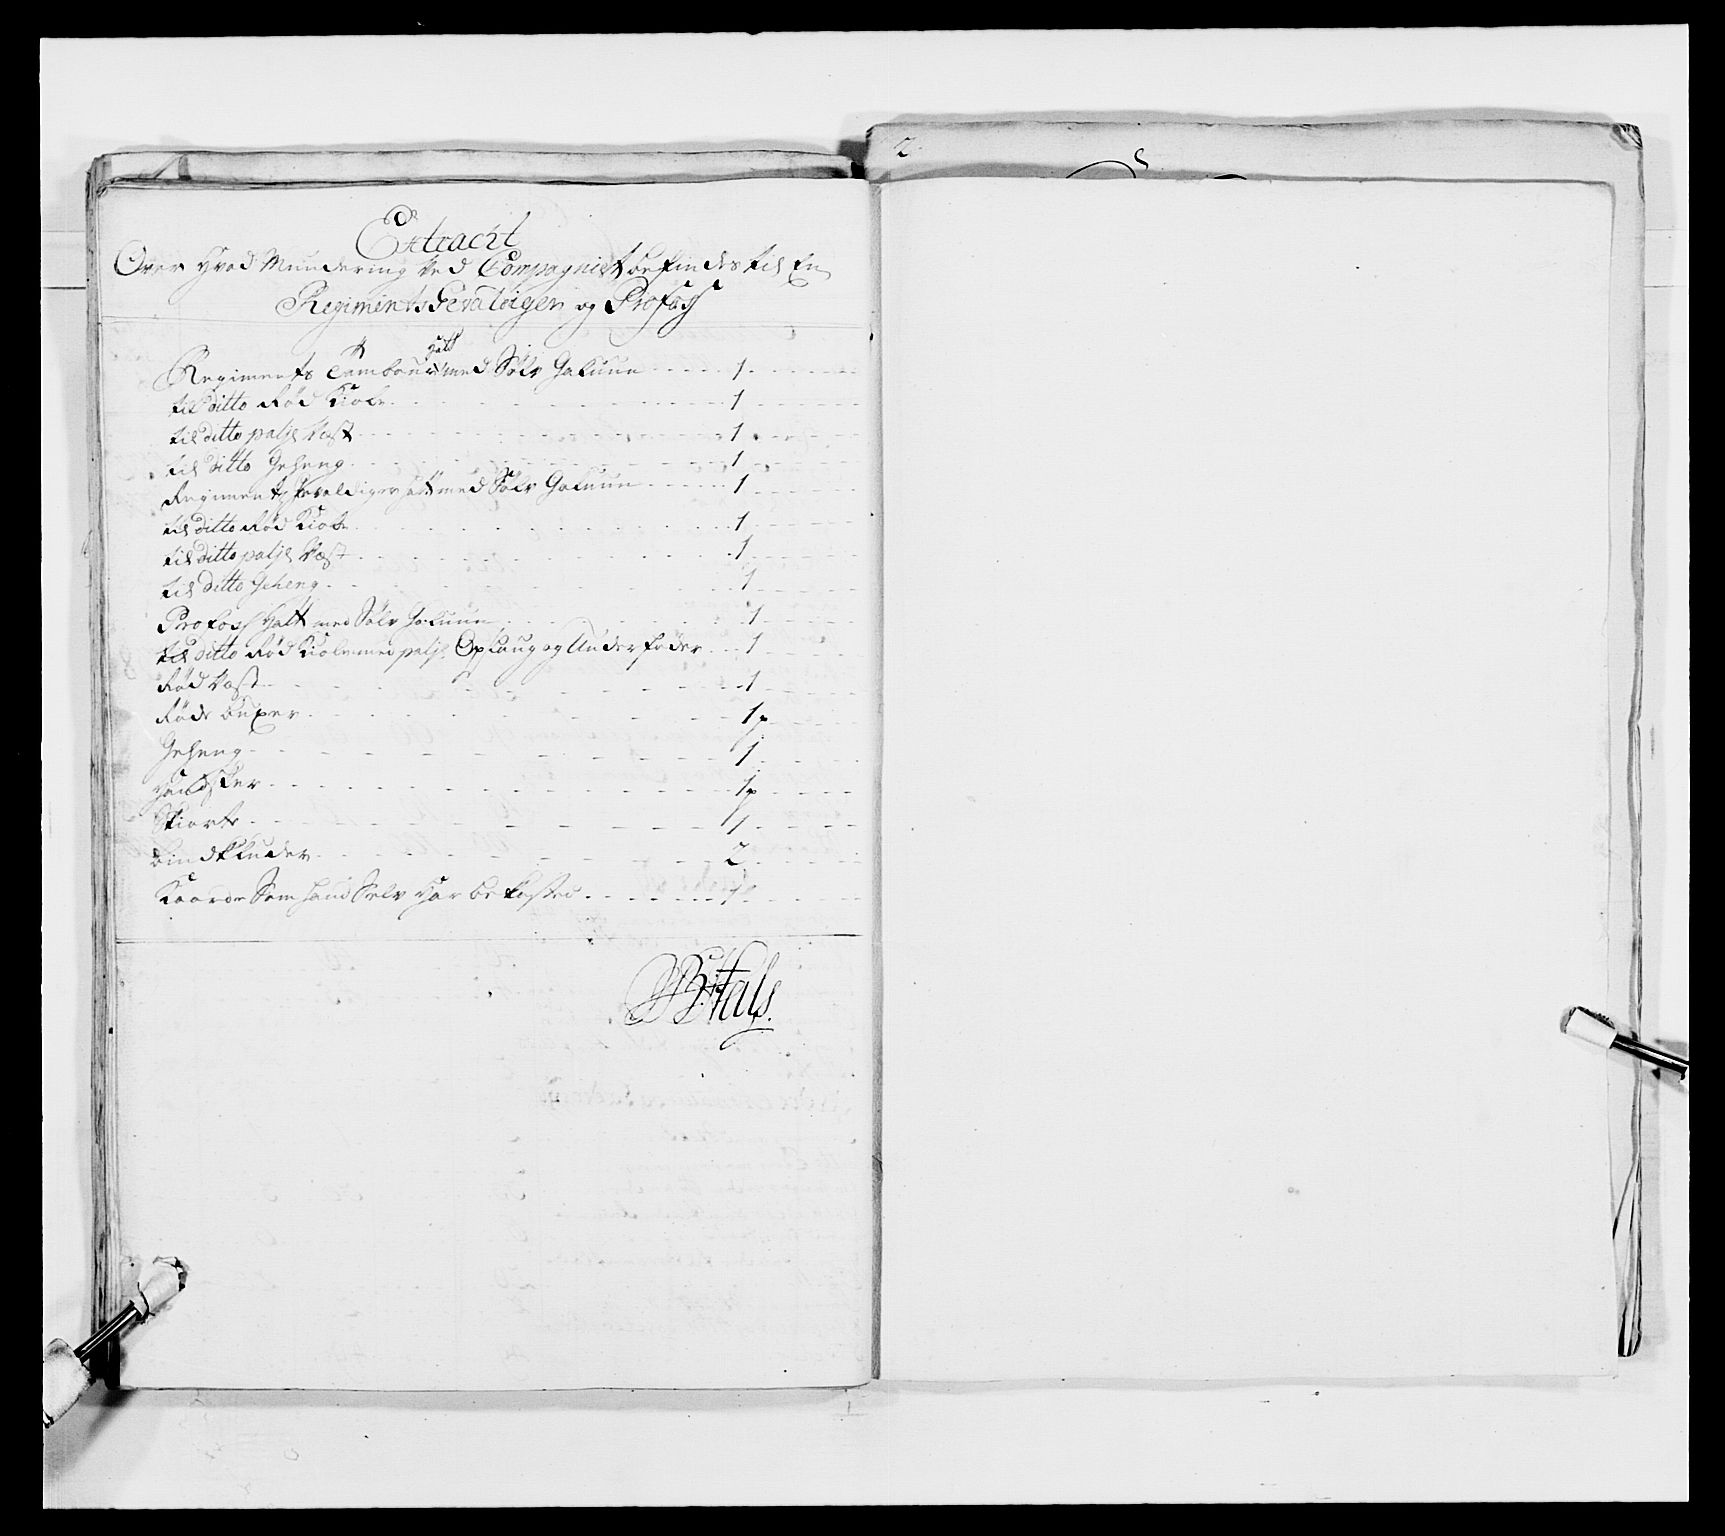 Extracht
Over hvad Mundering ved Compagniet befindes til En
Regiments Gevaldiger og Profoss
Regiments Tambour hatt med Sølv Galuun 1
til ditto Rød Kiole 1
til ditto palje Vest 1
til ditto Geheng 1
Regiments gevaldiger hatt med Sølv Galuun 1
til ditto Rød Kiole 1
til ditto palje Vest 1
til ditto Geheng 1
Profoss Hatt med Sølv Galuun 1
til ditto Rød Kiole med palje Opslaug og Underfoder 1
Rød Vest 1
Røde buxer 1 p
Geheng 1
Handsker 1 p
Skiorte 1
bindKluder 2
Kaarde Som hand Selv har bekosted 1
Hals.
2